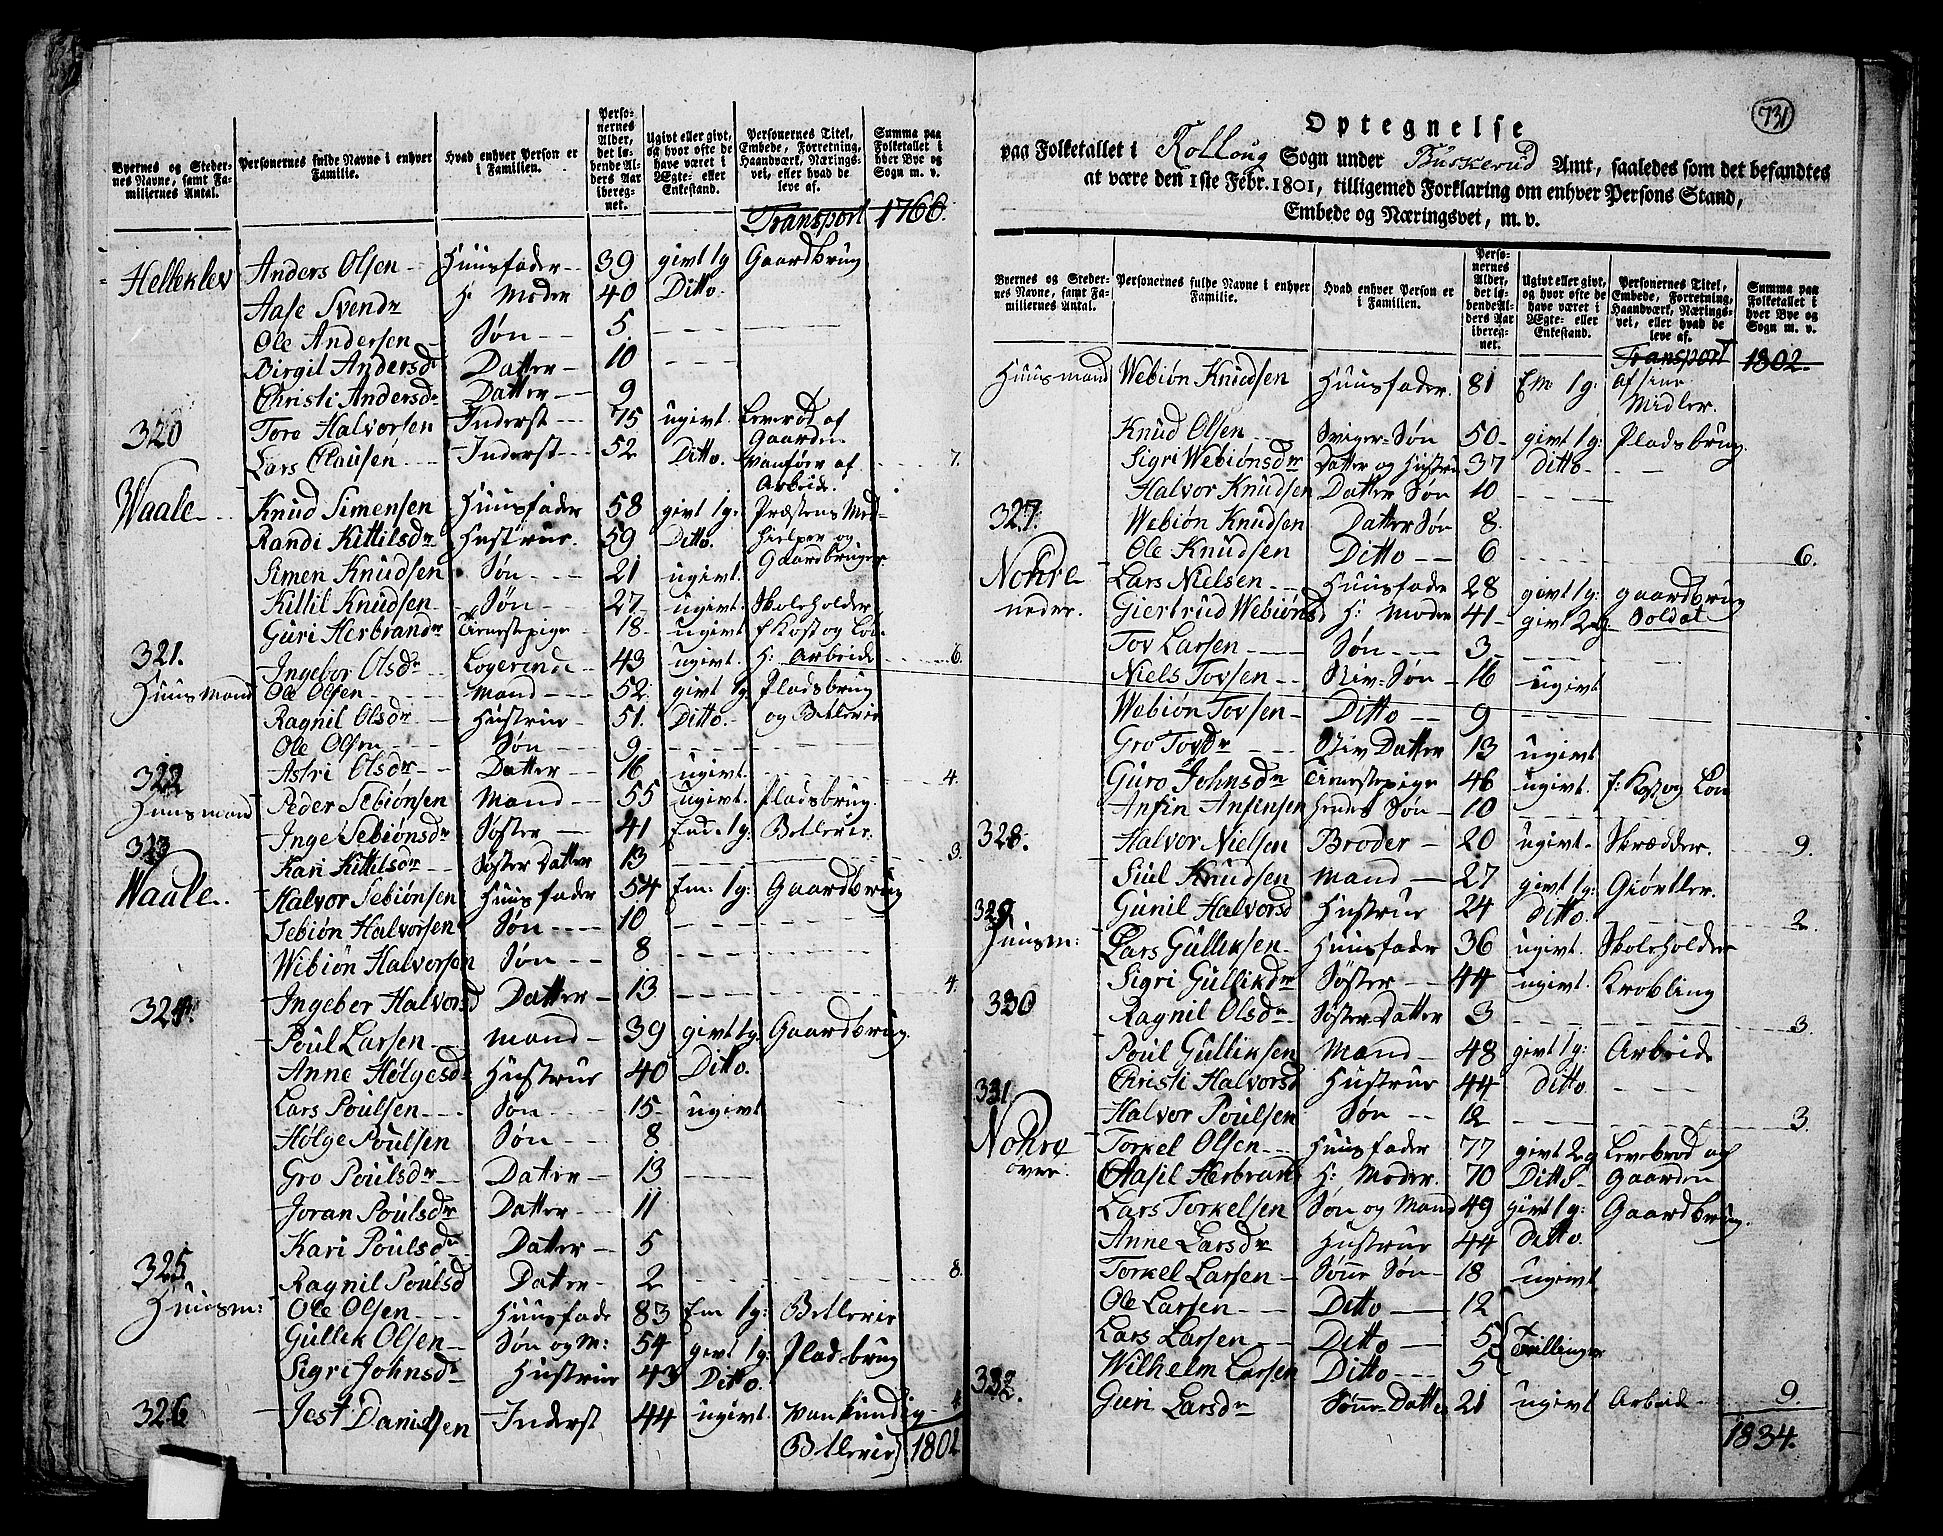 Byernes og Stedernes Navne, samt Familiernes Antal. | Personernes fulde Navne i enhver Familie. | Hvad enhver Person er i Familien. | Personernes Alder, det løbende Alders Aar iberegnet. | Ugivt eller givt, og hvor ofte de have været i Ægte- eller Enkestand. | Personernes Titel, Embede, Forretning, Haandværk, Næringsvei, eller hvad de leve af. | Summa paa Folketallet i hver Bye og Sogn m. v.
Transport 1766.
Helleklev Anders Olsen Huusfader 39 givt 1g Gaardbrug
Aase Svendr H: Moder 40 Ditto
Ole Andersen Søn 5
Birgit Andersd Datter 10
Christi Andersdr Datter 9
320 Tore Halvorsen Inderst 75 ugivt Levebrød af Gaarden
Lars Clausen Inderst 52 Ditto. Vanføer af Arbeide. 7.
Waale Knud Simensen Huusfader 58 givt 1g: Præstens Med-
Randi Kittilsdr Hustrue 59 Ditto. hielper og
Simen Knudsen Søn 21 ugivt. Gaardbruger
Kittil Knudsen Søn 27 ugivt. Skoleholder
Guri Herbrandr Tienestepige 18 ugivt f Kost og Løn
321. Ingebor Olsdr Logerende 43 ugivt. H: Arbeide 6.
Huusmand Ole Olsen Mand 52 givt 1g Pladsbrug
Ragnil Olsdr Hustrue 51. Ditto. og Betlerie
Ole Olsen Søn 9
322 Astri Olsdr Datter 16 ugivt. 4.
Huusmand Peder Sebiønsen Mand 55 ugivt. Pladsbrug.
Inge Sebiønsdr Søster 41 Enk. 1g: Betlerie.
323 Kari Kittilsdr Søster Datter 13 3.
Waale Halvor Sebiønsen Huusfader 54 Em: 1g: Gaardbrug
Sebiøn Halvorsen Søn 10
Wibiøn Halvorsen Søn 8
324. Ingeber Halvorsd Datter 13 4.
Poul Larsen mand 39 givt 1g: Gaardbrug.
Anne Hølgesdr Hustrue 40 Ditto.
Lars Poulsen Søn 15 ugivt
Hølge Poulsen Søn 8
Gro Poulsdr Datter 13
Joran Poulsdr Datter 11
Kari Poulsdr Datter 5
325. Ragnil Poulsd Datter 2 8.
Huusm: Ole Olsen Huusfade 83 Em 1g: Betlerie
Gullik Olsen Søn og M: 54 givt 1g: Pladsbrug
Sigri Johnsdr Hustrue 43 Ditto.
326 Jost Danielsen Inderst 44 ugivt Vankundig 4
Betlerie 1802
731
Optegnelse
paa Folketallet i Rolloug Sogn under Buskerud Amt, saaledes som det befandtes
at være den 1ste Febr. 1801, tilligemed Forklaring om enhver Persons Stand,
Embede og Næringsvei, m. v.
Byernes og Stedernes Navne, samt Familiernes Antal. | Personernes fulde Navne i enhver Familie. | Hvad enhver Person er i Familien. | Personernes Alder, det løbende Alders Aar iberegnet. | Ugivt eller givt, og hvor ofte de have været i Ægte- eller Enkestand. | Personernes Titel, Embede, Forretning, Haandværk, Næringsvei, eller hvad de leve af. | Summa paa Folketallet i hver Bye og Sogn m. v.
Transport 1802.
Huusmand Webiøn Knudsen Huusfader 81 Em 1g: af sine Midler.
Knud Olsen Sviger-Søn 50 givt 1g: Pladsbrug
Sigri Webiønsdr Datter og Hustrue 37 Ditto
Halvor Knudsen Datter Søn 10
327. Webiøn Knudsen Datter Søn 8
Ole Knudsen Ditto 6 6.
Nohre neder. Lars Nielsen Huusfader 28 givt 1g: gaardbrug
Giertrud Webiønsd H: Moder 41 givt 2g Soldat
Tov Larsen Søn 3
Niels Tovsen Stiv-Søn 16 ugivt
Webiøn Tovsen Ditto 9
Gro Tovsdr Stiv Datter 13 ugivt
Guro Johnsdr Tienestepige 46 ugivt. f: Kost og Løn
Anfin Anfensen hendes Søn 10
328. Halvor Nielsen Broder 20 ugivt. Skrædder. 9.
Siul Knudsen Mand 27 givt 1g: Giørtler.
329 Gunil Halvorsd Hustrue 24 Ditto. 2.
Huusm: Lars Gulliksen Huusfader 36 ugivt. Skoleholder
Sigri Gulliksdr Søster 44 ugivt. Krøbling
330 Ragnil Olsdr Søster-Datter 3 3.
Poul Gulliksen Mand 48 givt 1g: Arbeide
331. Christi Halvorsd Hustrue 44 Ditto
Halvor Poulsen Søn 12 3.
Nohre over. Torkel Olsen Huusfader 77 givt 2g Levebrød af
Aasil Herbrand H: Moder. 70 Ditto Gaarden
Lars Torkelsen Søn og Mand 49 givt 1g: Gaardbrug.
Anne Larsdr Hustrue 44 Ditto.
Torkel Larsen Sønne Søn 18 ugivt
Ole Larsen Ditto 12
Lars Larsen Ditto 5 Tvillinger
Wilhelm Larsen Ditto 5
332. Guri Larsdr Sønne-Datter 21 ugivt Arbeide 9.
1834.